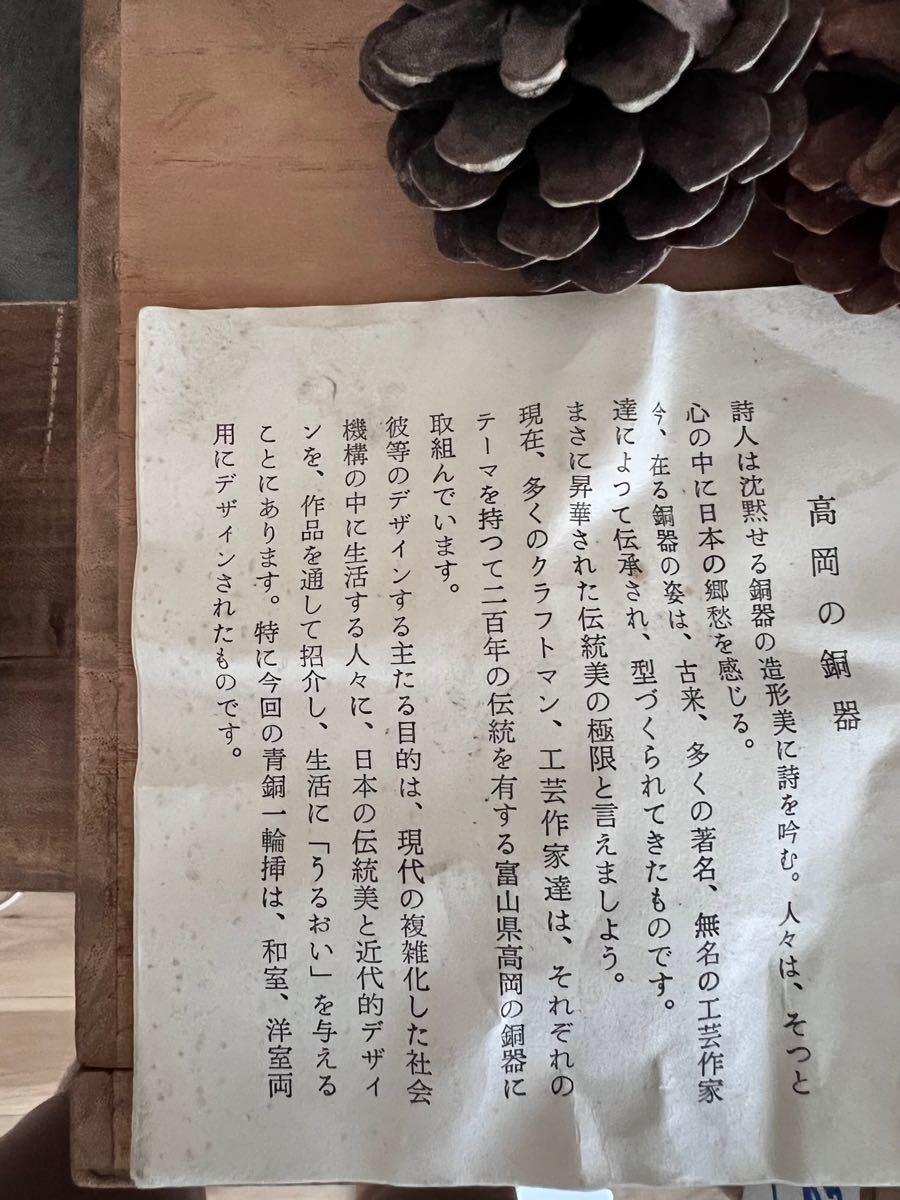 高岡の銅器
詩人は沈黙せる銅器の造形美に詩を吟む。人々は、そつと
心の中に日本の郷愁を感じる。
今、在る銅器の姿は、古来、多くの著名、無名の工芸作家
達によつて伝承され、型づくられてきたものです。
まさに昇華された伝統美の極限と言えましよう。
現在、多くのクラフトマン、工芸作家達は、それぞれの
テーマを持つて二百年の伝統を有する富山県高岡の銅器に
取組んでいます。
彼等のデザインする主たる目的は、現代の複雑化した社会
機構の中に生活する人々に、日本の伝統美と近代的デザイ
ンを、作品を通して招介し、生活に「うるおい」を与える
ことにあります。特に今回の青銅一輪挿は、和室、洋室両
用にデザインされたものです。